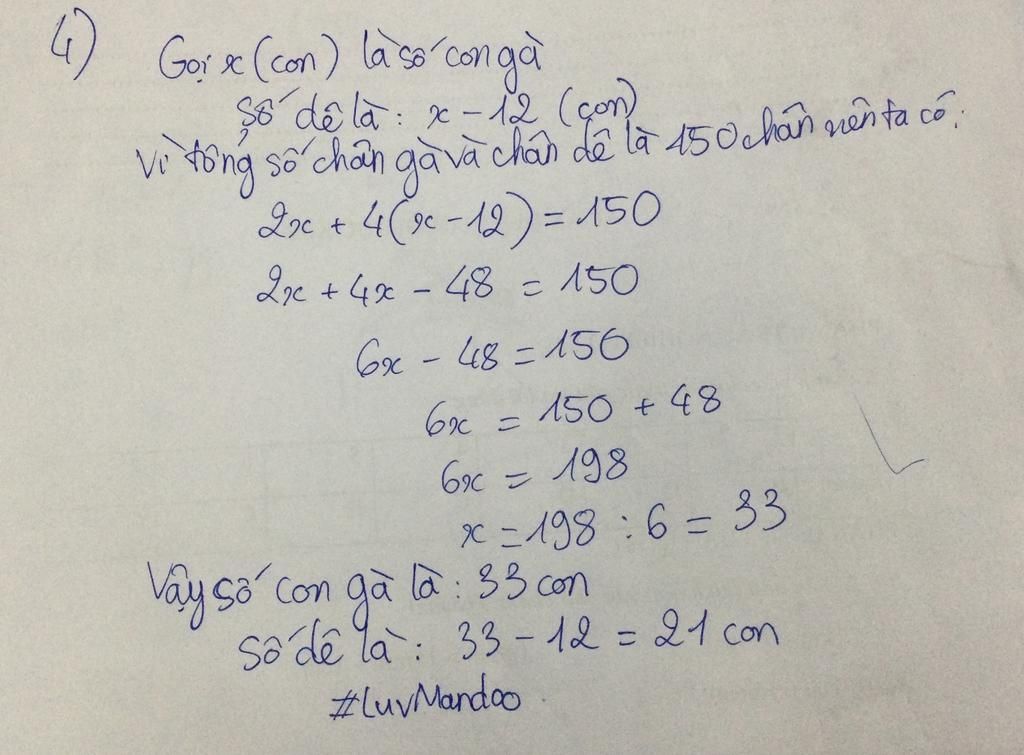 4) Gọi x (con) là số con gà
số dê là: x - 12 (con)
Vì tổng số chân gà và chân dê là 150 chân nên ta có:
2x + 4(x - 12) = 150
2x + 4x - 48 = 150
6x - 48 = 150
6x = 150 + 48
6x = 198
x = 198 : 6 = 33
Vậy số con gà là: 33 con
Số dê là: 33 - 12 = 21 con
#LuvMandoo